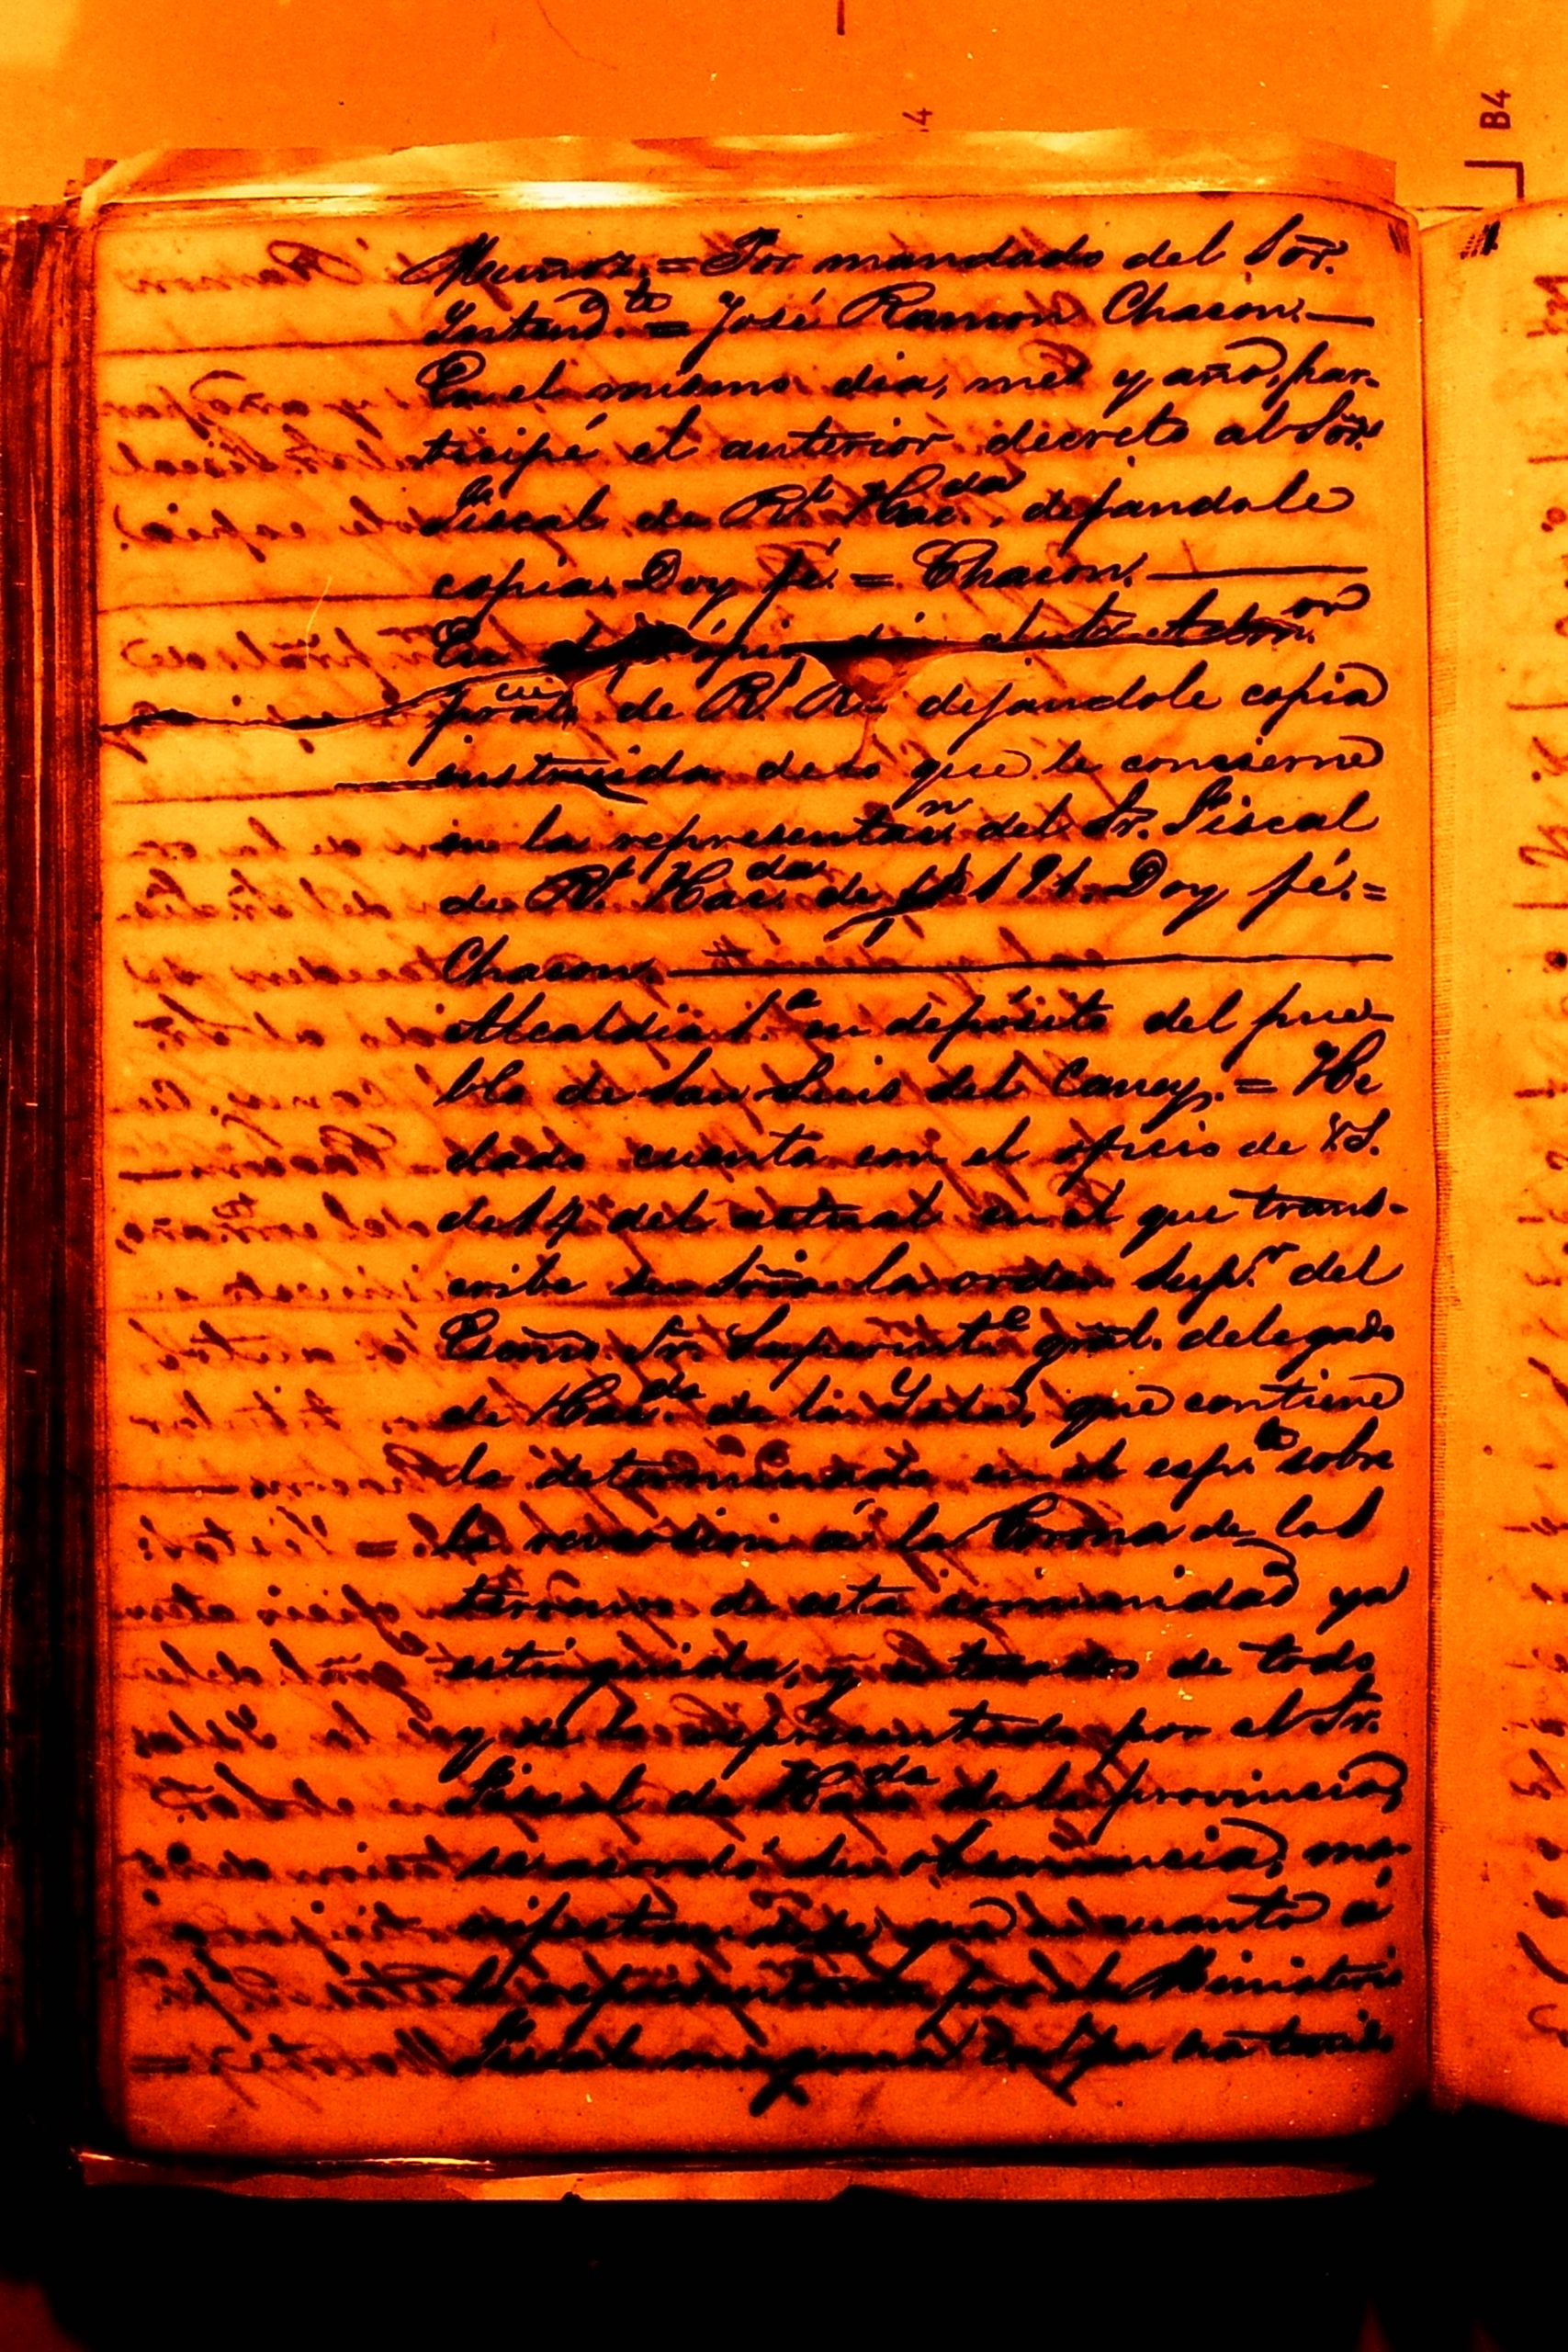 B4
Muñoz. = Por mandado del Sōr.
Intend.te = José Ramon Chacon. —
En el mismo dia, mes y año, par-
ticipé el anterior decreto al Sōr.
Fiscal de Rl. Hac.da, dejandole
copia. Doy fé. = Chacon. —
En
de Rl. dejandole copia
instruida de lo que le concierne
en la representan.n del Sr. Fiscal
de Rl. Hac.da de Doy fé. =
Chacon. —
Alcaldia 1.a en depósito del pue-
blo de San Luis del Caney. = He
dado cuenta con el oficio de VS.
de 14 del actual en el que trans-
cribe Su Sōria la orden Sup.r del
Escmō. Sr. Superint.e gral. delegado
de Hac.da de la Isla, que contiene
lo determinado en el esp.te sobre
la reversion á la Corona de los
terrenos de esta comunidad ya
estinguida, y enterados de todo
y de lo representado por el Sr.
Fiscal de Hac.da de la provincia,
se acordó su obediencia, ma-
nifestando que en cuanto á
lo representado por el Ministerio
Fiscal ninguna